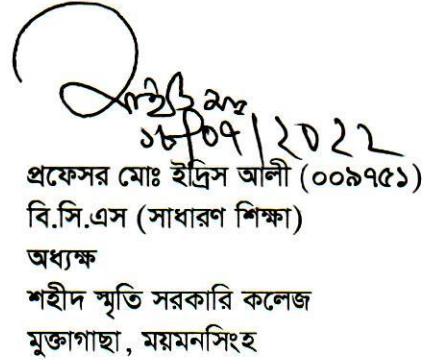 ১৮/০৭/2022
প্রফেসর মোঃ ইদ্রিস আলী (০০৯৭৫১)
বি.সি.এস (সাধারণ শিক্ষা)
অধ্যক্ষ
শহীদ স্মৃতি সরকারি কলেজ
মুক্তাগাছা, ময়মনসিংহ